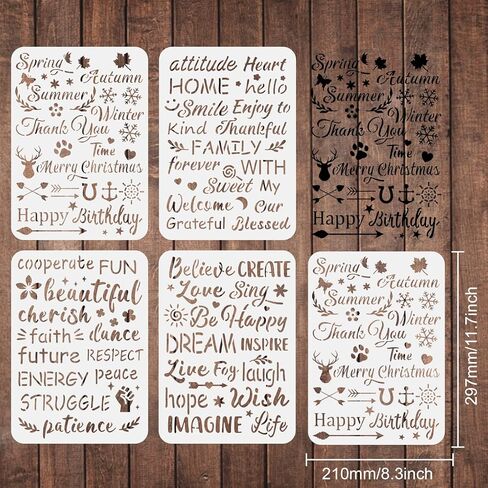 Spring
Autumn
Summer
Winter
Thank You
Time
Merry Christmas
Happy Birthday
attitude Heart
HOME hello
Smile Enjoy to
Kind Thankful
FAMILY
forever WITH
Sweet My
Welcome Our
Grateful Blessed
Spring
Autumn
Summer
Winter
Thank You
Time
Merry Christmas
Happy Birthday
cooperate FUN
beautiful
cherish
faith dance
future RESPECT
ENERGY peace
STRUGGLE
patience
Believe CREATE
Love Sing
Be Happy
DREAM INSPIRE
Live Foy laugh
hope Wish
IMAGINE Life
Spring
Autumn
Summer
Winter
Thank You
Time
Merry Christmas
Happy Birthday
297mm/11.7inch
210mm/8.3inch